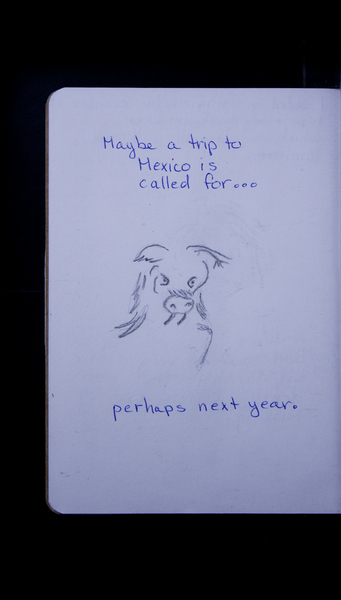 Maybe a trip to
Mexico is
called for...
perhaps next year.